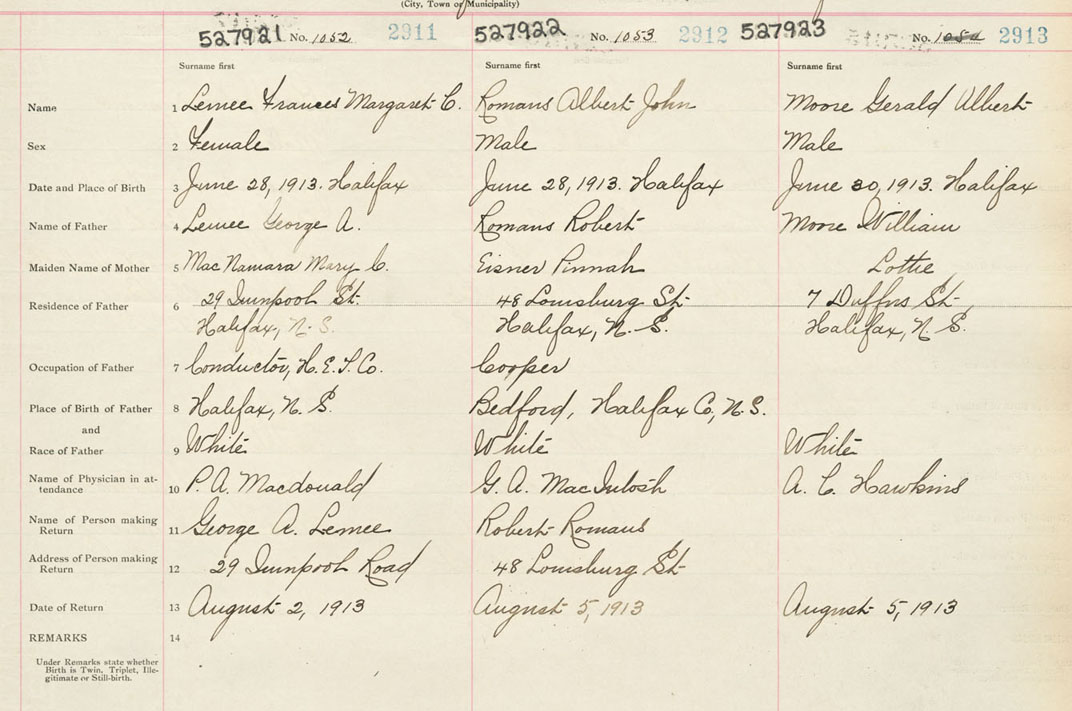 (City, Town or Municipality)
527921 No. 1052 2911 527922 No. 1053 2912 527923 No. 1054 2913
Surname first Surname first Surname first
Name 1 Lemee Frances Margaret C. Romans Albert John Moore Gerald Albert
Sex 2 Female Male Male
Date and Place of Birth 3 June 28, 1913. Halifax June 28, 1913. Halifax June 30, 1913. Halifax
Name of Father 4 Lemee George A. Romans Robert Moore William
Maiden Name of Mother 5 MacNamara Mary C. Eisner Pinnah Lottie
Residence of Father 6 29 St. 48 Louisburg St. 7 Duffus St.
Halifax, N.S. Halifax, N.S. Halifax, N.S.
Occupation of Father 7 Conductor, H.E.T. Co. Cooper
Place of Birth of Father 8 Halifax, N.S. Bedford, Halifax Co, N.S.
and
Race of Father 9 White White White
Name of Physician in at-
tendance 10 P. A. Macdonald G. A. MacIntosh A. C. Hawkins
Name of Person making
Return 11 George A. Lemee Robert Romans
Address of Person making
Return 12 29 Road 48 Louisburg St.
Date of Return 13 August 2, 1913 August 5, 1913 August 5, 1913
REMARKS 14
Under Remarks state whether
Birth is Twin, Triplet, Ille-
gitimate or Still-birth.